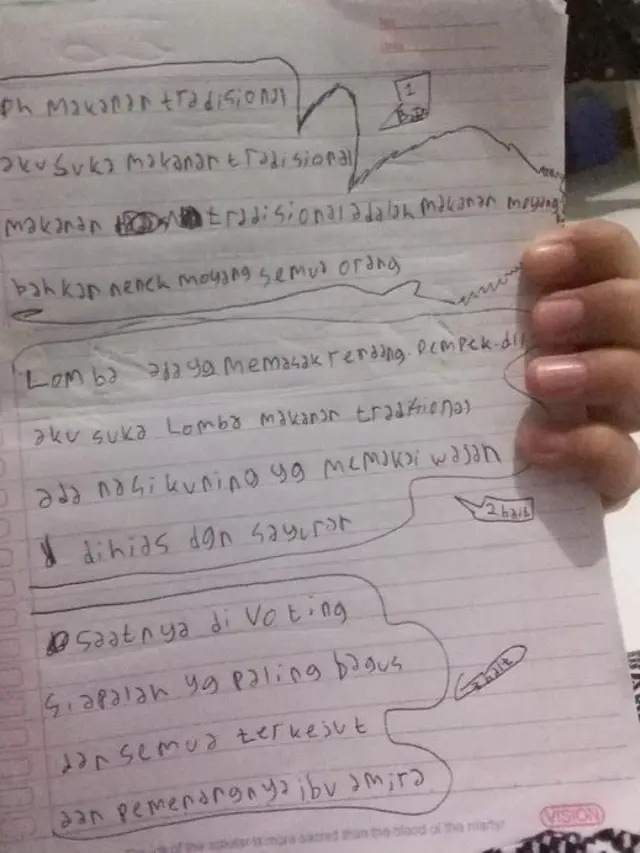 oh makanan tradisional
1
Bait
aku suka makanan tradisional
makanan tradisional adalah makanan moyang
bahkan nenek moyang semua orang
Lomba ada yg memasak rendang. pempek-dll
aku suka Lomba makanan tradisional
ada nasi kuning yg memakai wajan
dihias dgn sayuran
2 bait
saatnya di voting
siapalah yg paling bagus
dan semua terkejut
dan pemenangnya ibu amira
bait
VISION
of the scholar is more sacred than the blood of the martyr